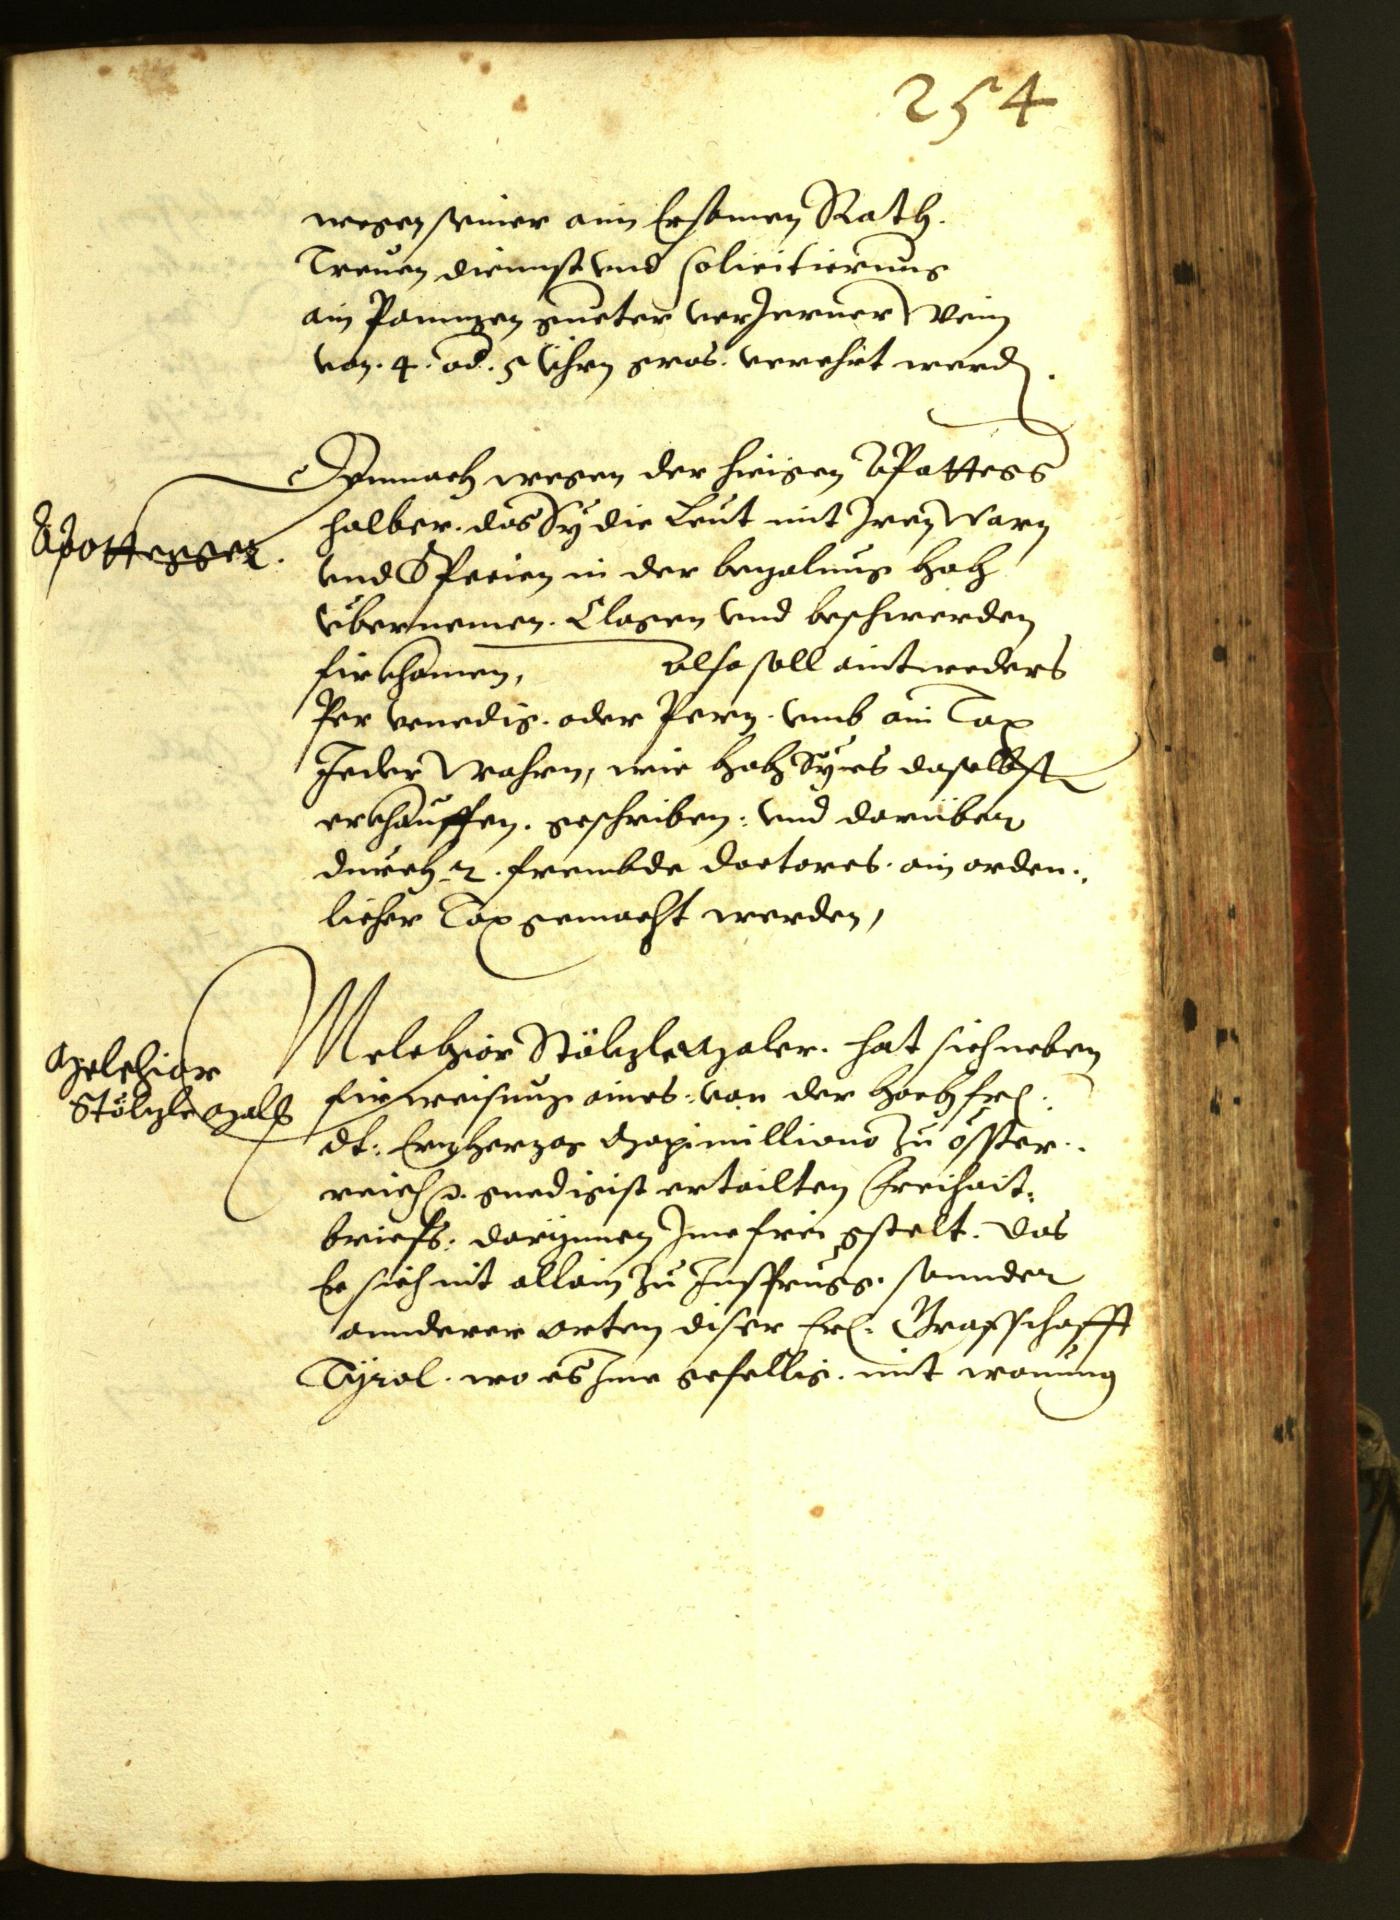 254
wegen seiner aim Ersamen Rath.
Treuen diennst vnd solicitierung
ain Panngen gueter verJerner Wein
von. 4. od. 5 Vhrn gros. verehrt werd.
Apottegger.
Demnach wegen der hieigen APottegg
halber. das Sy die Leut mit Jren Warn
vnd SPecien in der bezalung hoch
vbernemen. Clagen vnd beschwerden
fürkhomen, Also soll aintweders
Per Venedig. oder Pern. vmb ain Tax
Jeder Wahrn, wie hoch Sy es daselbst
erkhauffen. geschriben: vnd darüber
durch 2. frembde doctores. ain orden:
licher Tax gemacht werden,
Melchior
Stölzle Maler
Melchior Stölzle Maler. hat sich neben
fürweisung aines: von der hochfrl:
dt: Erzherzog Maximilliano zu Öster:
reich . gnedigist ertailten Freihait:
briefs: darynnen Jme frei gstelt. das
Er sich nit allain zu Jnsprugg. sonnder
annderer orten diser frl: Grafschafft
Tyrol. wo es Jme gefellig. mit wonung